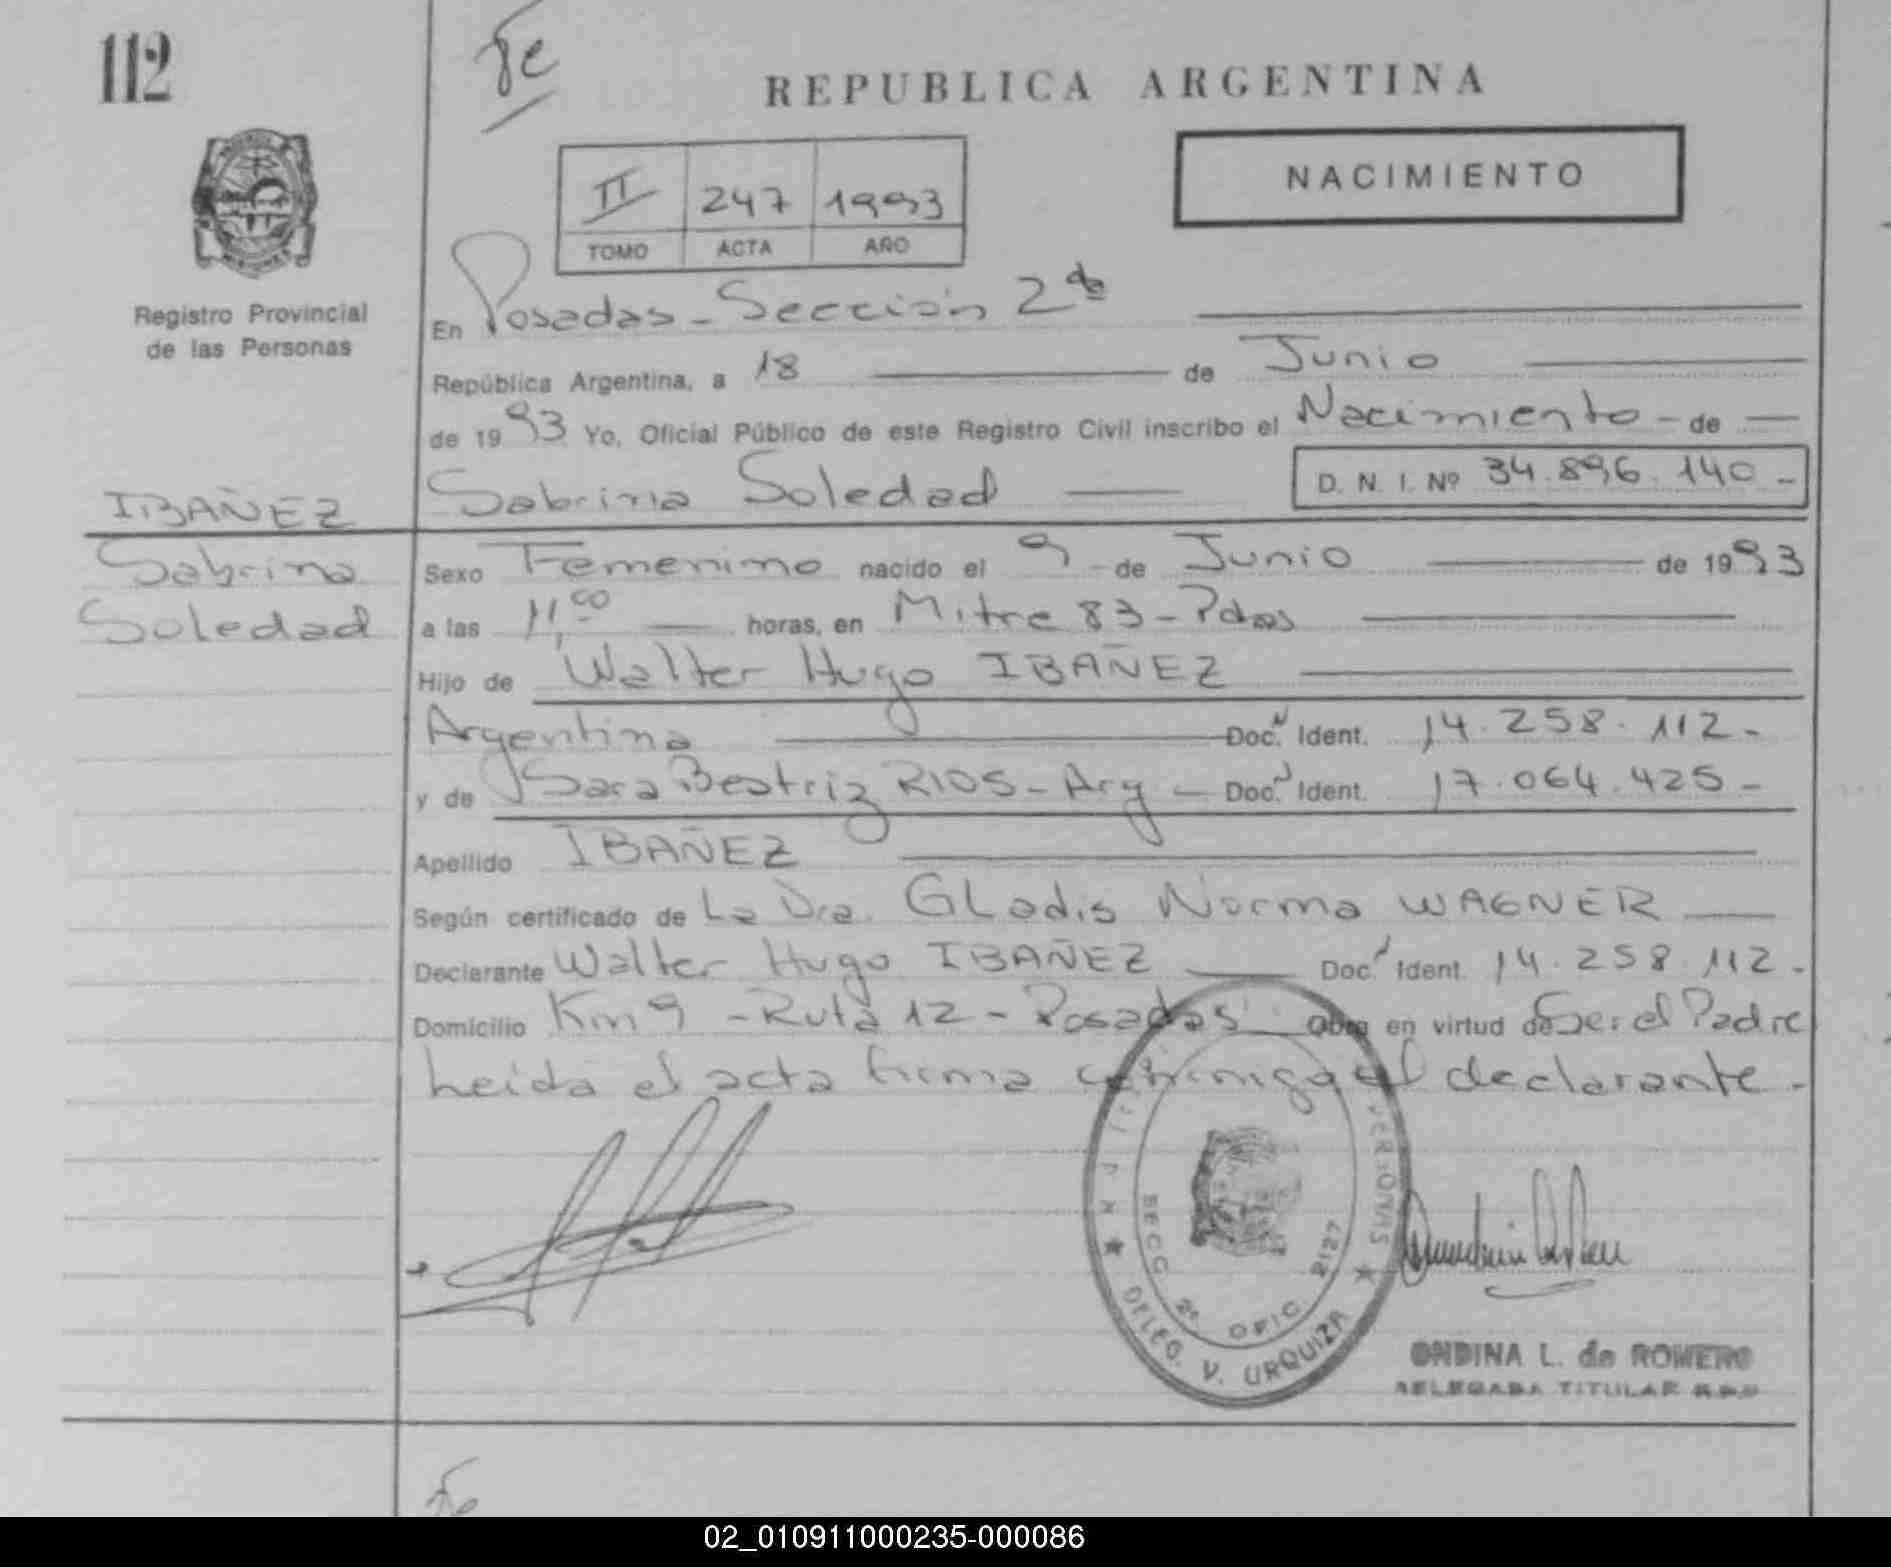 112
Fe
REPUBLICA ARGENTINA
NACIMIENTO
II 247 1993
TOMO ACTA AÑO
Registro Provincial
de las Personas
En Posadas - Sección 2da
República Argentina, a 18 de Junio
de 1993 Yo, Oficial Público de este Registro Civil inscribo el Nacimiento - de
Sabrina Soledad D. N. I. Nº 34.896.140 -
IBAÑEZ
Sabrina
Soledad
Sexo Femenino nacido el 9 de Junio de 1993
a las 11,00 horas, en Mitre 83 - Pdas
Hijo de Walter Hugo IBAÑEZ
Argentina Doc. Ident. 14.258.112 -
y de Sara Beatriz RIOS - Arg - Doc. Ident. 17.064.425 -
Apellido IBAÑEZ
Según certificado de La Dra. GLadis Norma WAGNER
Declarante Walter Hugo IBAÑEZ Doc. Ident. 14.258.112 -
Domicilio Km 9 - Ruta 12 - Posadas Obra en virtud de Ser el Padre
Leida el acta firma conmigo el declarante -
SECC 2ª OFIC. 2127
DELEG. V. URQUIZA
ONDINA L. de ROMERO
DELEGADA TITULAR
02_010911000235-000086